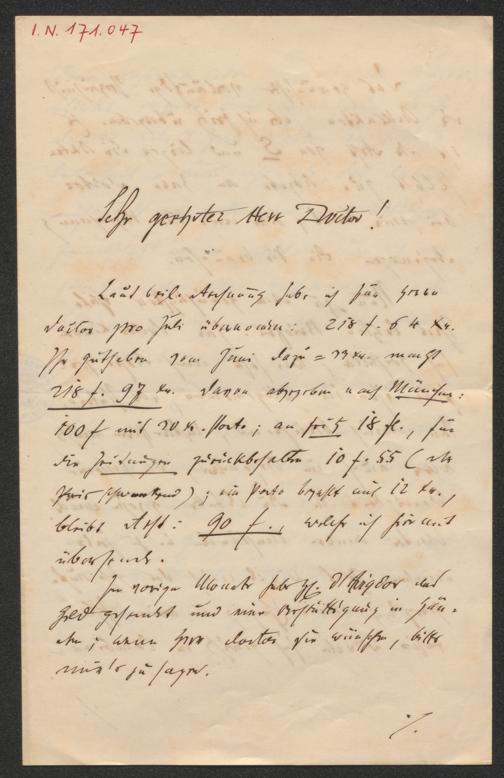 I.N. 171.047
Sehr geehrter Herr Doctor!
Laut beil. Rechnung habe ich für Herrn
Doctor pro Juli übernommen: 218 f. 64 Kr.
Ihr Guthaben vom Juni dazu = 33 Kr. macht
218 f. 97 Kr. Davon abgegeben nach München:
100 f mit 30 Kr. Porto; an Fritz 18 fl., für
die Zeitungen zurückbehalten 10 f. 55 (da
Preis schwankend); ein Porto bezahlt mit 12 Kr.,
bleibt Rest: 90 f., welche ich hiermit
übersende.
Im vorigen Monate habe ich das
Geld gesendet und eine Bestättigung in Hän-
den; wenn Herr Doctor sie wünschen, bitte
mir's zu sagen.
./.